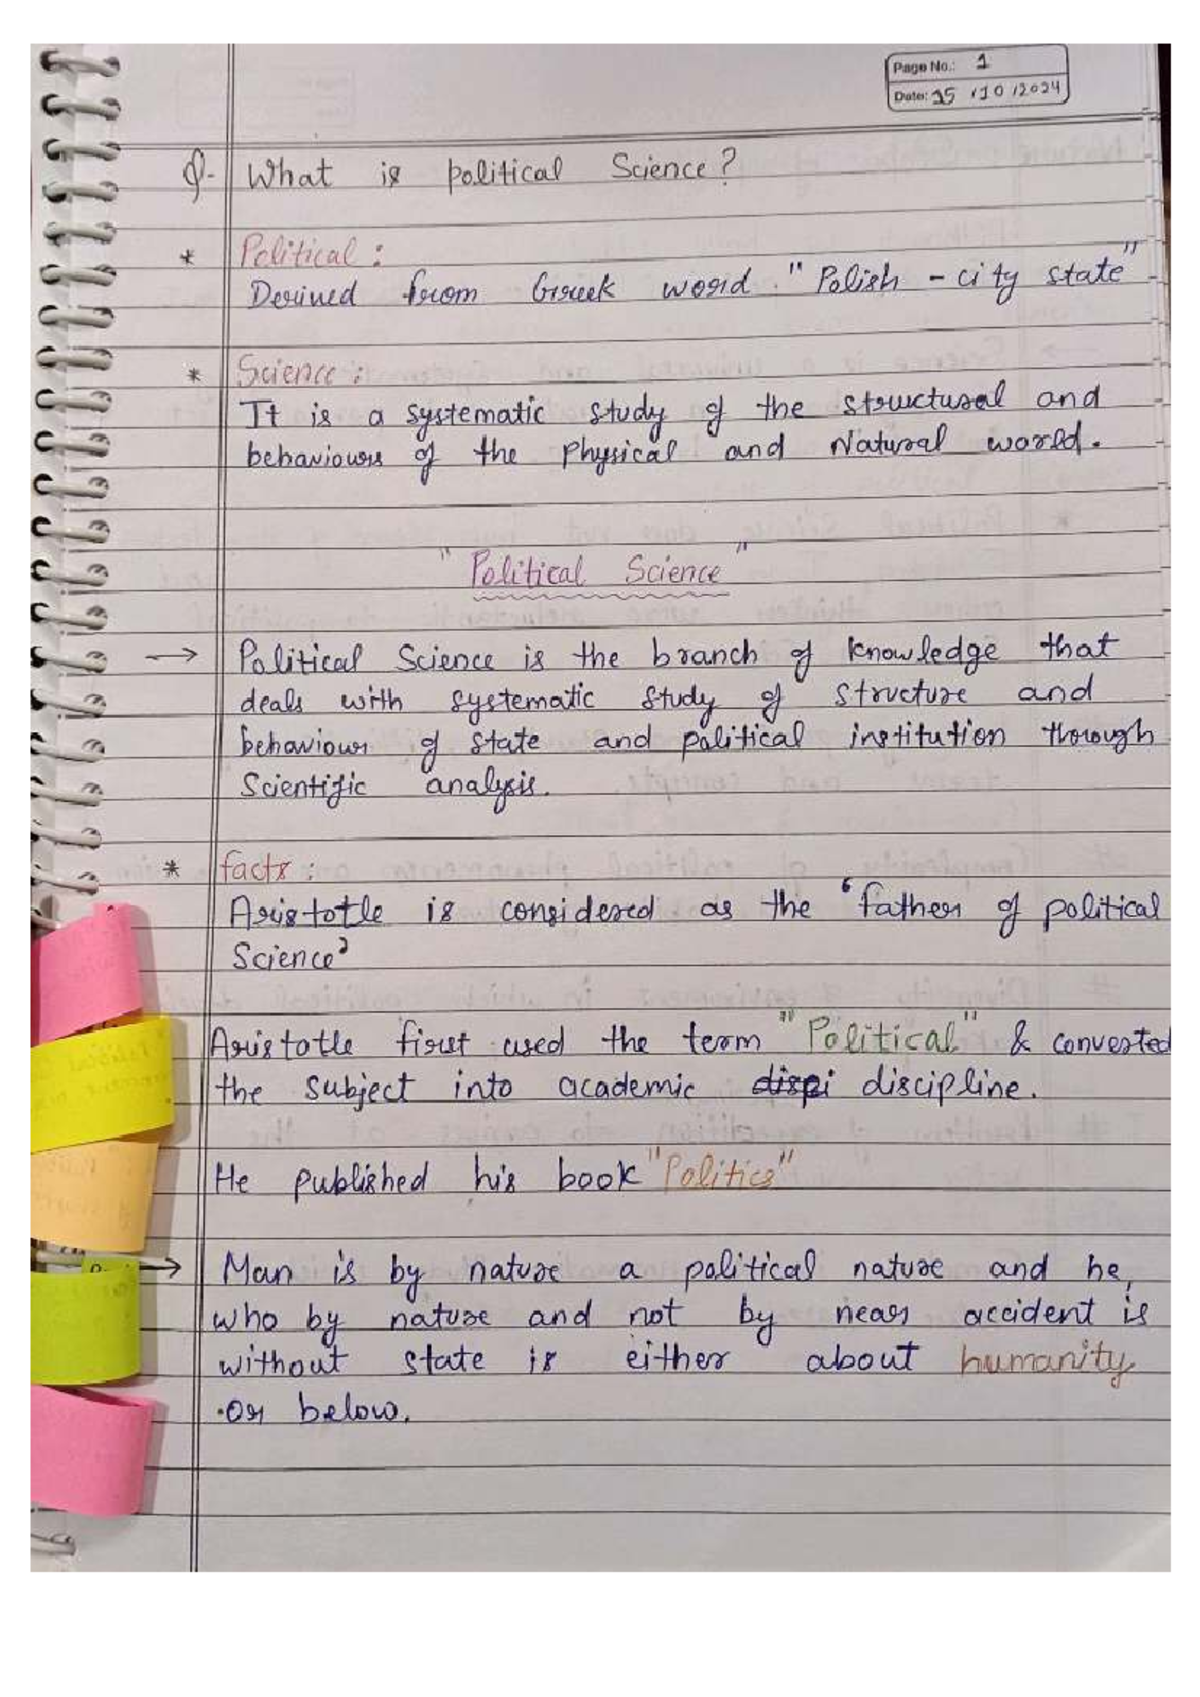 Page No.: 1
Date: 25 / 10 / 2024
Q. What is political Science?
* Political :
Derived from Greek word. "Polish - city state"
* Science :
It is a systematic study of the structural and
behaviours of the Physical and Natural world.
"Political Science"
→ Political Science is the branch of knowledge that
deals with systematic study of structure and
behaviour of state and political institution through
Scientific analysis.
* facts :
Aristotle is considered as the 'father of political
Science'
Aristotle first used the term "Political" & converted
the subject into academic dispi discipline.
He published his book "Politics"
→ Man is by nature a political nature and he,
who by nature and not by near accident is
without state is either about humanity
or below.